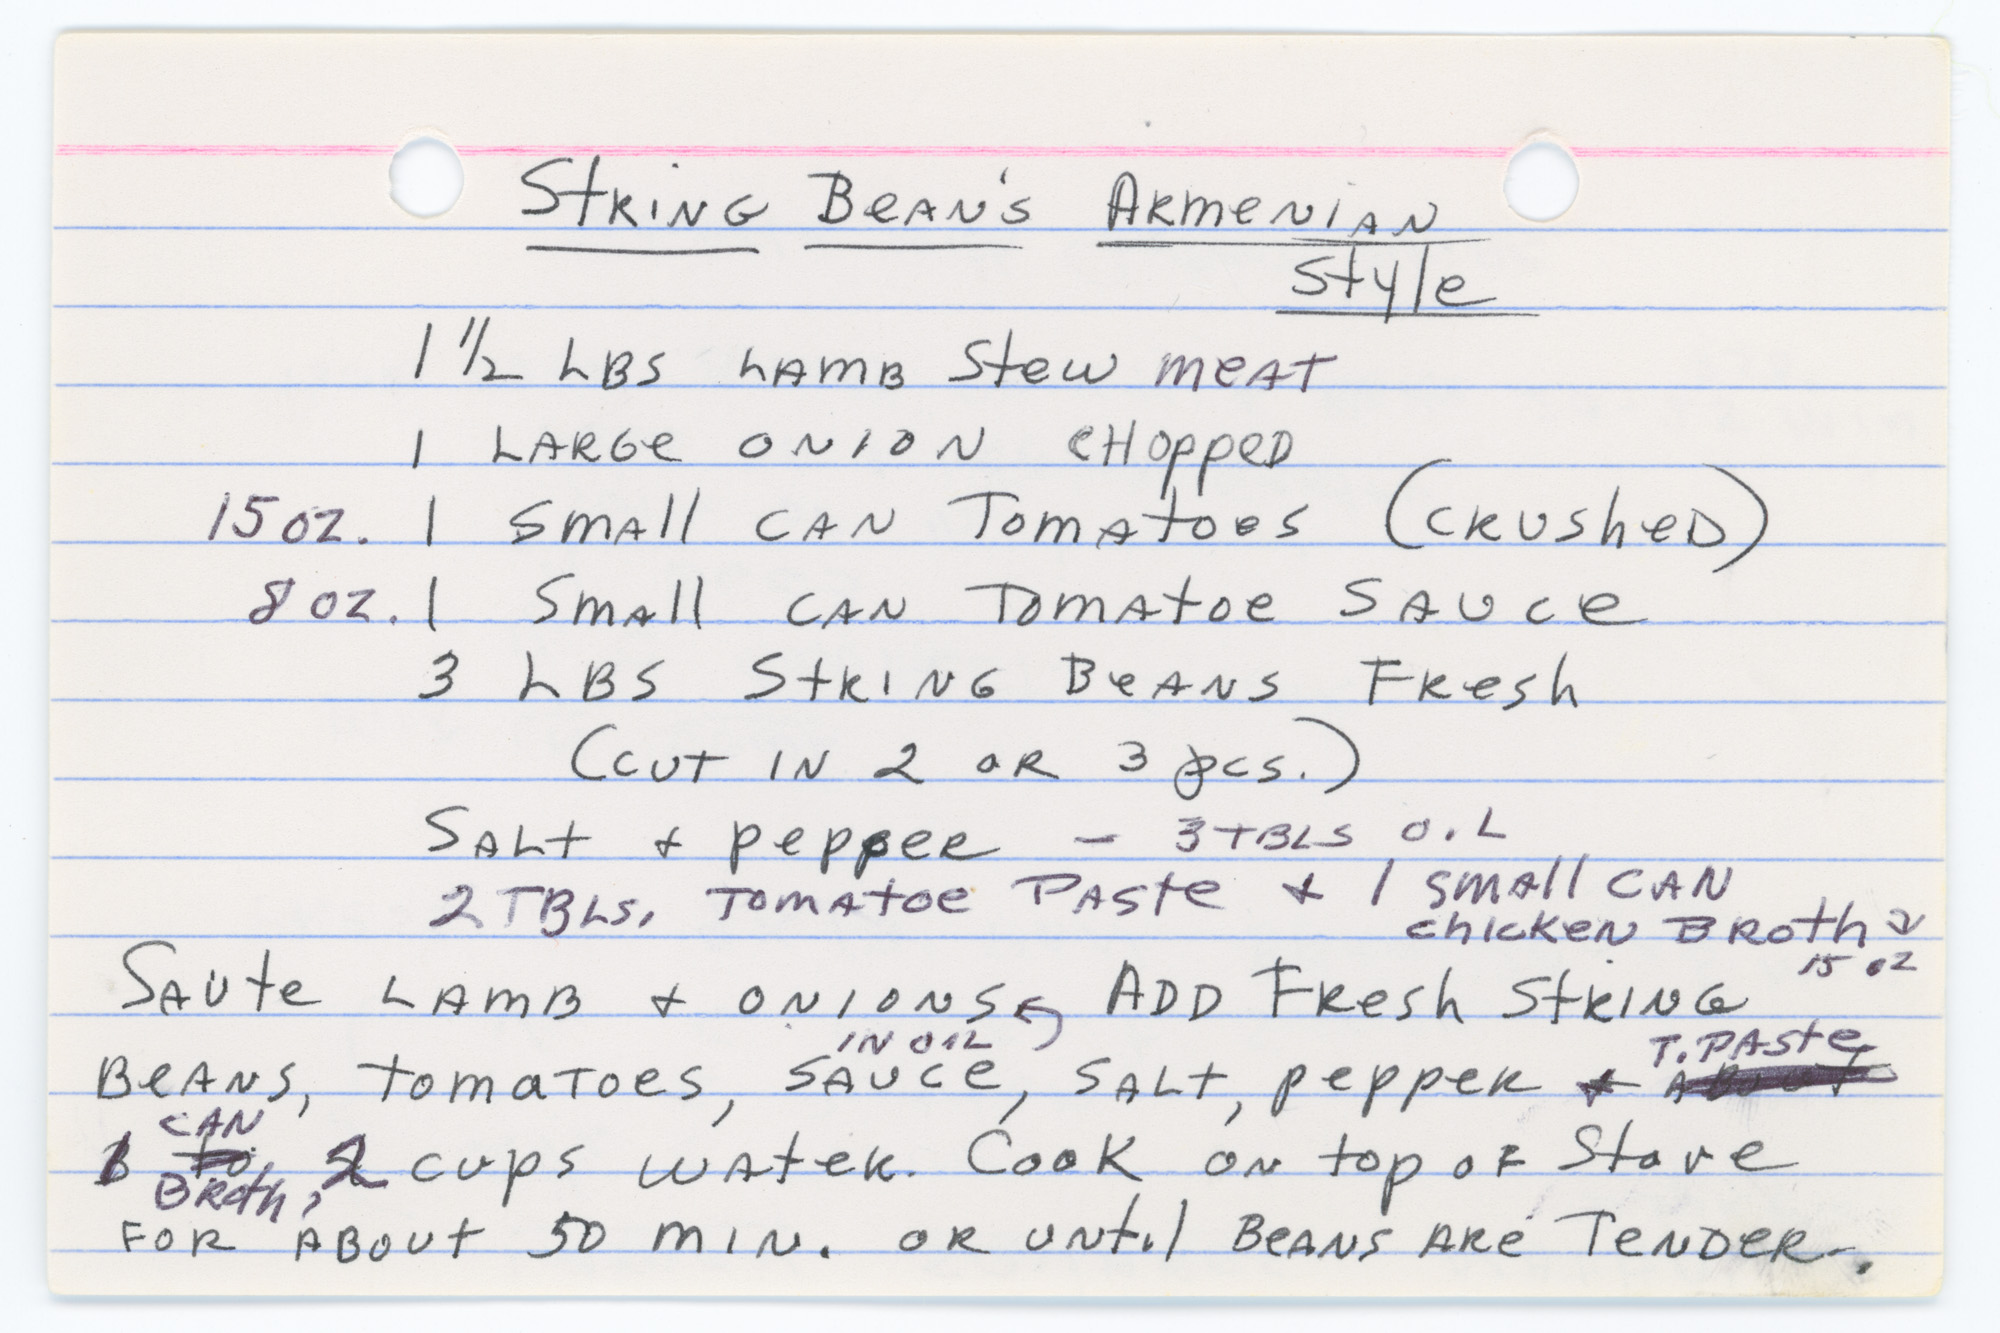 String Bean's Armenian
Style
1 1/2 LBS LAMB Stew meat
1 LARGE ONION CHOPPED
15 oz. 1 Small CAN Tomatoes (CRUSHED)
8 oz. 1 Small CAN Tomatoe SAUCE
3 LBS String Beans Fresh
(CUT IN 2 OR 3 pcs.)
SALt & pepper - 3 TBLS OiL
2 TBLS. Tomatoe Paste & 1 small CAN
chicken Broth
15 oz
Saute LAMB & ONIONS ADD Fresh String
IN OIL T. PASte
Beans, tomatoes, SAUCE, SALt, pepper & About
CAN
1 to 2 cups water. Cook on top of Stove
Broth,
FOR ABOUt 50 MIN. OR until Beans ARe TenDeR.